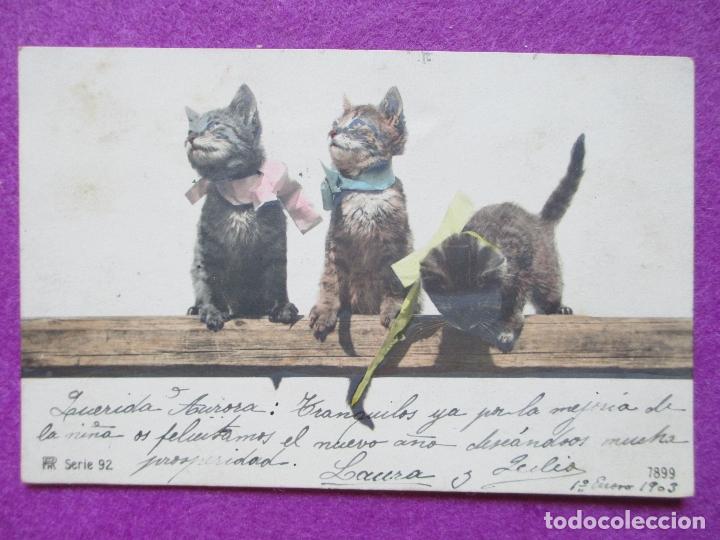 Querida Aurora: Tranquilos ya por la mejoria de
la niña os felicitamos el nuevo año deseándoos mucha
prosperidad. Laura y Julio
Serie 92
7899
1º Enero 1903
todocoleccion
todocoleccion.net